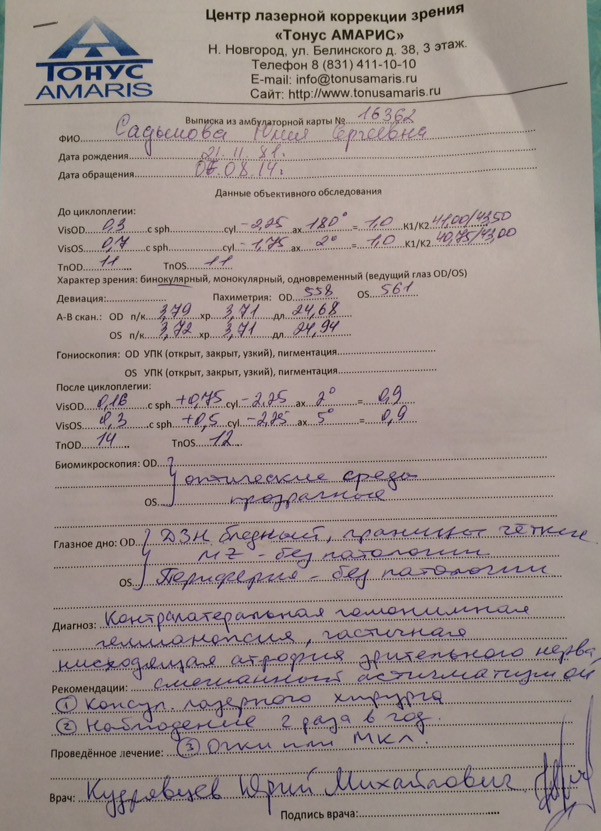 Тонус
AMARIS
Центр лазерной коррекции зрения
«Тонус АМАРИС»
Н. Новгород, ул. Белинского д. 38, 3 этаж.
Телефон 8 (831) 411-10-10
E-mail: info@tonusamaris.ru
Сайт: http://www.tonusamaris.ru
Выписка из амбулаторной карты № 16362
ФИО Садымова Юлия Сергеевна
Дата рождения 21.11.81.
Дата обращения 07.08.14.
Данные объективного обследования
До циклоплегии:
VisOD 0,3 с sph cyl -2,25 ax 180° = 1,0 К1/К2 41,00/43,50
VisOS 0,7 с sph cyl -1,75 ax 2° = 1,0 К1/К2 40,75/43,00
TnOD 11 TnOS 11
Характер зрения: бинокулярный, монокулярный, одновременный (ведущий глаз OD/OS)
Девиация: Пахиметрия: OD 558 OS 561
А-В скан.: OD п/к 3,79 хр 3,71 дл 24,68
OS п/к 3,72 хр 3,71 дл 24,94
Гониоскопия: OD УПК (открыт, закрыт, узкий), пигментация
OS УПК (открыт, закрыт, узкий), пигментация
После циклоплегии:
VisOD 0,16 с sph +0,75 cyl -2,25 ax 2° = 0,9
VisOS 0,3 с sph +0,5 cyl -2,25 ax 5° = 0,9
TnOD 14 TnOS 12
Биомикроскопия: OD
оптические среды
OS прозрачные
Глазное дно: OD ДЗН бледный, границы четкие
MZ - без патологии
OS Периферия - без патологии
Диагноз: Контралатеральная гомонимная
гемианопсия, частичная
нисходящая атрофия зрительного нерва,
Рекомендации: смешанный астигматизм
① Консул. лазерного хирурга
② Наблюдение 2 раза в год.
Проведённое лечение: ③ Очки или МКЛ.
Врач: Кудрявцев Юрий Михайлович
Подпись врача: